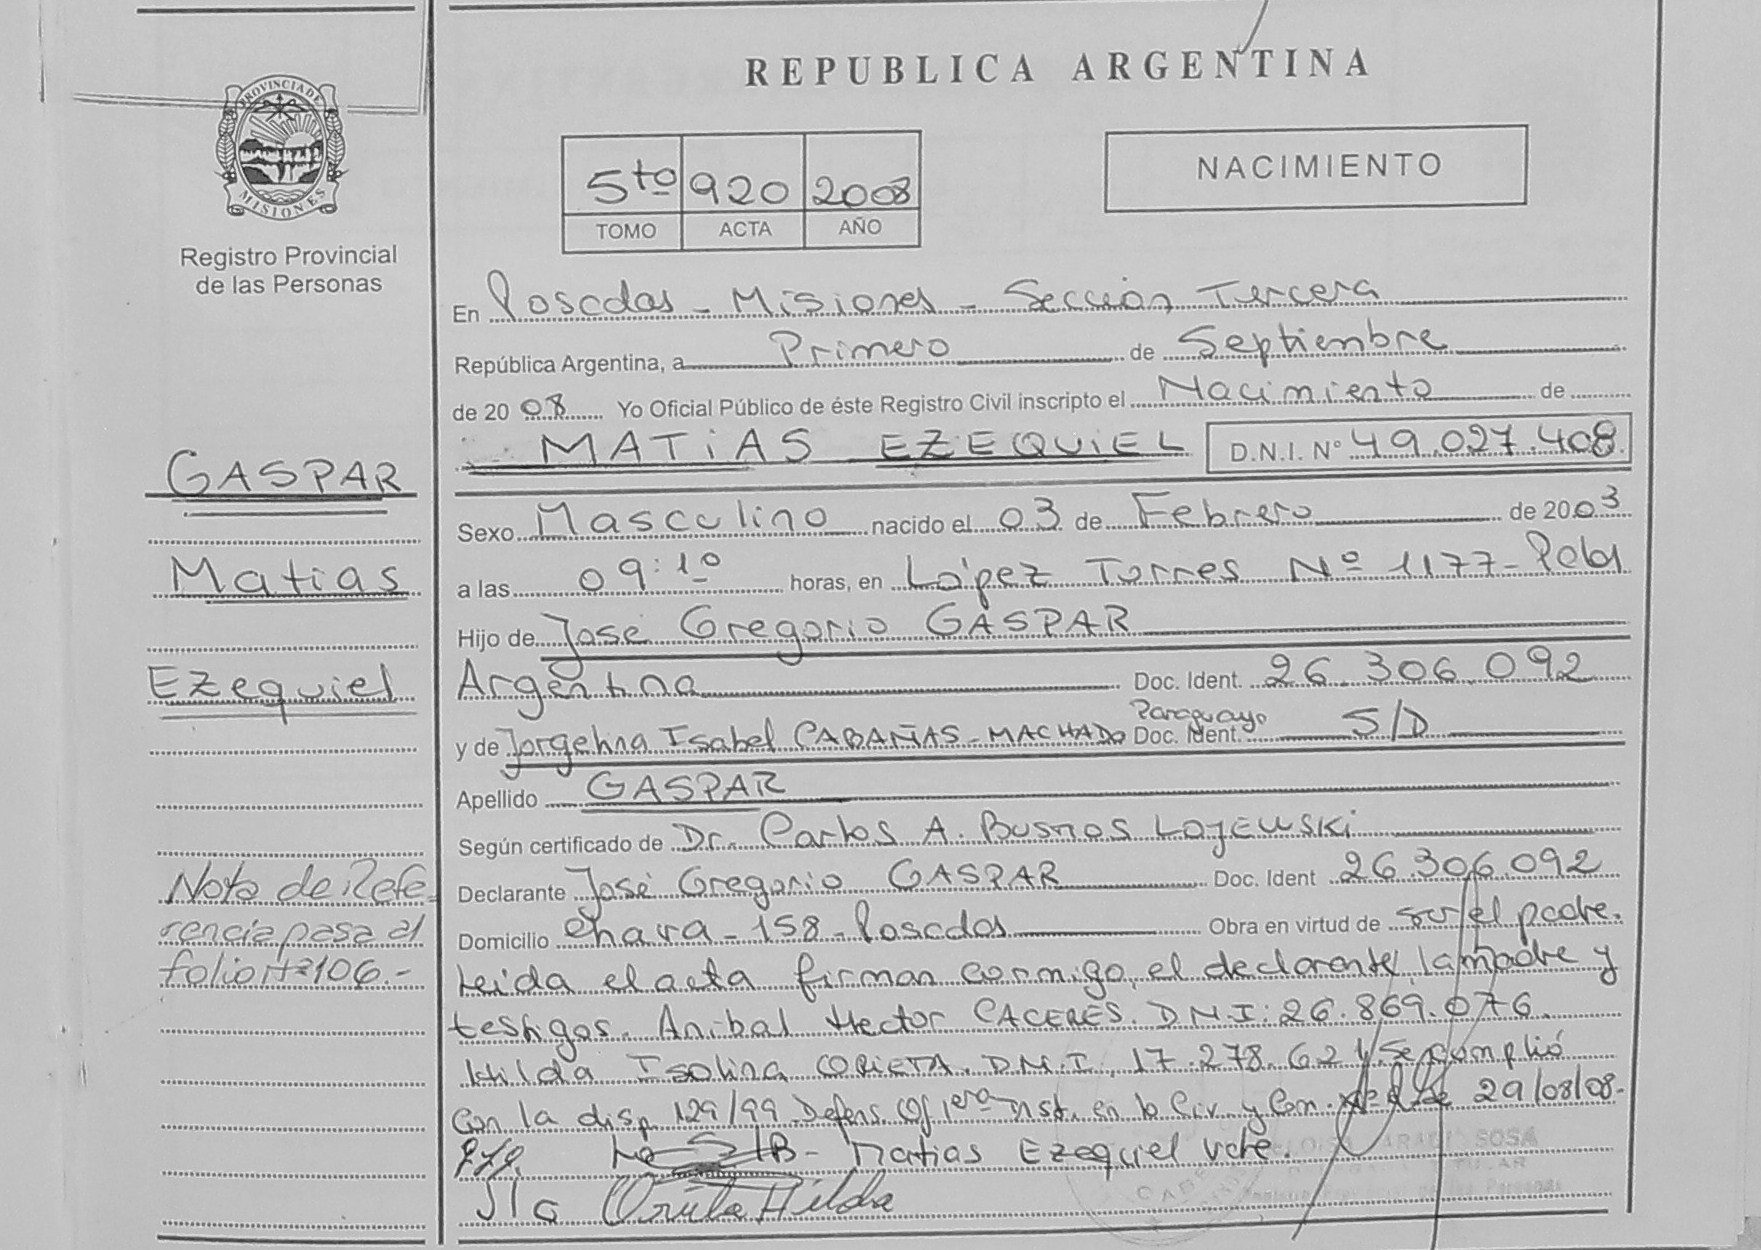 REPUBLICA ARGENTINA
PROVINCIA DE
MISIONES
Registro Provincial
de las Personas
5to 920 2008
TOMO ACTA AÑO
NACIMIENTO
En Posadas - Misiones - Sección Tercera
República Argentina, a Primero de Septiembre
de 20 08 Yo Oficial Público de éste Registro Civil inscripto el Nacimiento de
MATiAS EZEQUiEL D.N.I. Nº 49.027.408
GASPAR
Matias
Ezequiel
Sexo Masculino nacido el 03 de Febrero de 2003
a las 09:10 horas, en López Torres Nº 1177- Pdas
Hijo de José Gregorio GASPAR
Argentina Doc. Ident. 26.306.092
y de Jorgelina Isabel CABAÑAS - MACHADO Paraguayo Doc. Ident. S/D
Apellido GASPAR
Según certificado de Dr. Carlos A. Bustos Lajewski
Declarante José Gregorio GASPAR Doc. Ident 26.306.092
Domicilio Chava - 158 - Posadas Obra en virtud de ser el padre.
Leida el acta firman conmigo, el declarante, la madre y
testigos. Anibal Hector CACERES. D.N.I: 26.869.076
Hilda Isolina D.N.I. 17.278.621 Se cumplió
con la disp 129/99 Defens. Of 1era Inst. en lo Civ. y Com. 29/08/08-
Matias Ezequiel vale.
Hilda
Nota de Refe-
rencia pasa al
folio Nº 106.-
SOSA